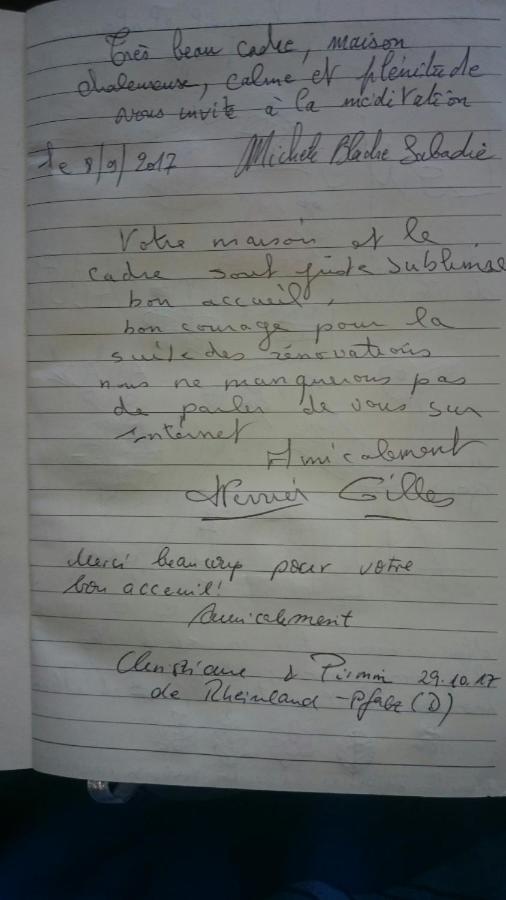 Très beau cadre, maison
chaleureuse, calme et plénitude
vous invite à la méditation
le 8/9/2017 Michele Sabadie
Votre maison et le
cadre sont juste sublimse
bon accueil,
bon courage pour la
suite des rénovations
nous ne manquerons pas
de parler de vous sur
Internet
Amicalement
Gilles
Merci beaucoup pour votre
bon acceuil!
Amicalement
Christiane & Pirmin 29.10.17
de Rheinland-Pfalz (D)